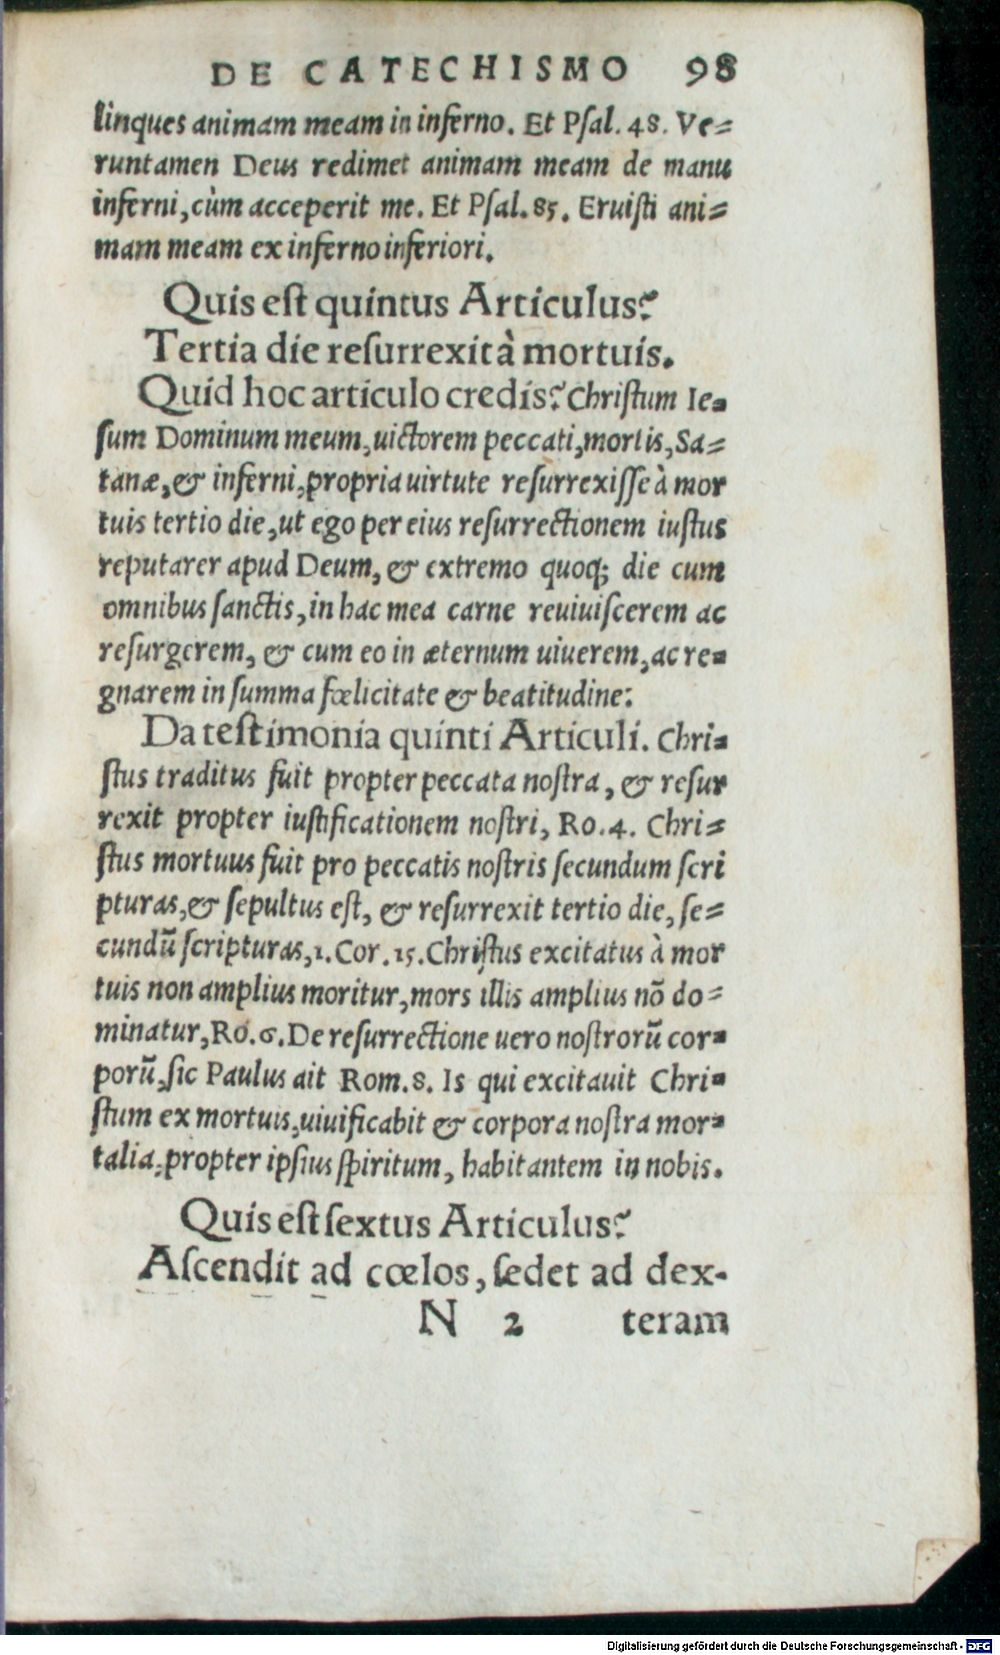 DE CATECHISMO 98
linques animam meam in inferno. Et Pſal. 48. Ve=
runtamen Deus redimet animam meam de manu
inferni, cùm acceperit me. Et Pſal. 85. Eruiſti ani=
mam meam ex inferno inferiori.
Quis eſt quintus Articulus?
Tertia die reſurrexit à mortuis.
Quid hoc articulo credis? Chriſtum Ie=
ſum Dominum meum, uictorem peccati, mortis, Sa=
tanæ, & inferni, propria uirtute reſurrexiſſe à mor
tuis tertio die, ut ego per eius reſurrectionem iuſtus
reputarer apud Deum, & extremo quoq; die cum
omnibus ſanctis, in hac mea carne reuiuiſcerem ac
reſurgerem, & cum eo in æternum uiuerem, ac re=
gnarem in ſumma fœlicitate & beatitudine.
Da teſtimonia quinti Articuli. Chri=
ſtus traditus fuit propter peccata noſtra, & reſur
rexit propter iuſtificationem noſtri, Ro. 4. Chri=
ſtus mortuus fuit pro peccatis noſtris ſecundum ſcri
pturas, & ſepultus eſt, & reſurrexit tertio die, ſe=
cundũ ſcripturas, 1. Cor. 15. Chriſtus excitatus à mor
tuis non amplius moritur, mors illis amplius nõ do=
minatur, Ro. 6. De reſurrectione uero noſtrorũ cor=
porũ, ſic Paulus ait Rom. 8. Is qui excitauit Chri=
ſtum ex mortuis, uiuificabit & corpora noſtra mor=
talia, propter ipſius ſpiritum, habitantem in nobis.
Quis eſt ſextus Articulus?
Aſcendit ad cœlos, ſedet ad dex-
N 2 teram
Digitalisierung gefördert durch die Deutsche Forschungsgemeinschaft - DFG